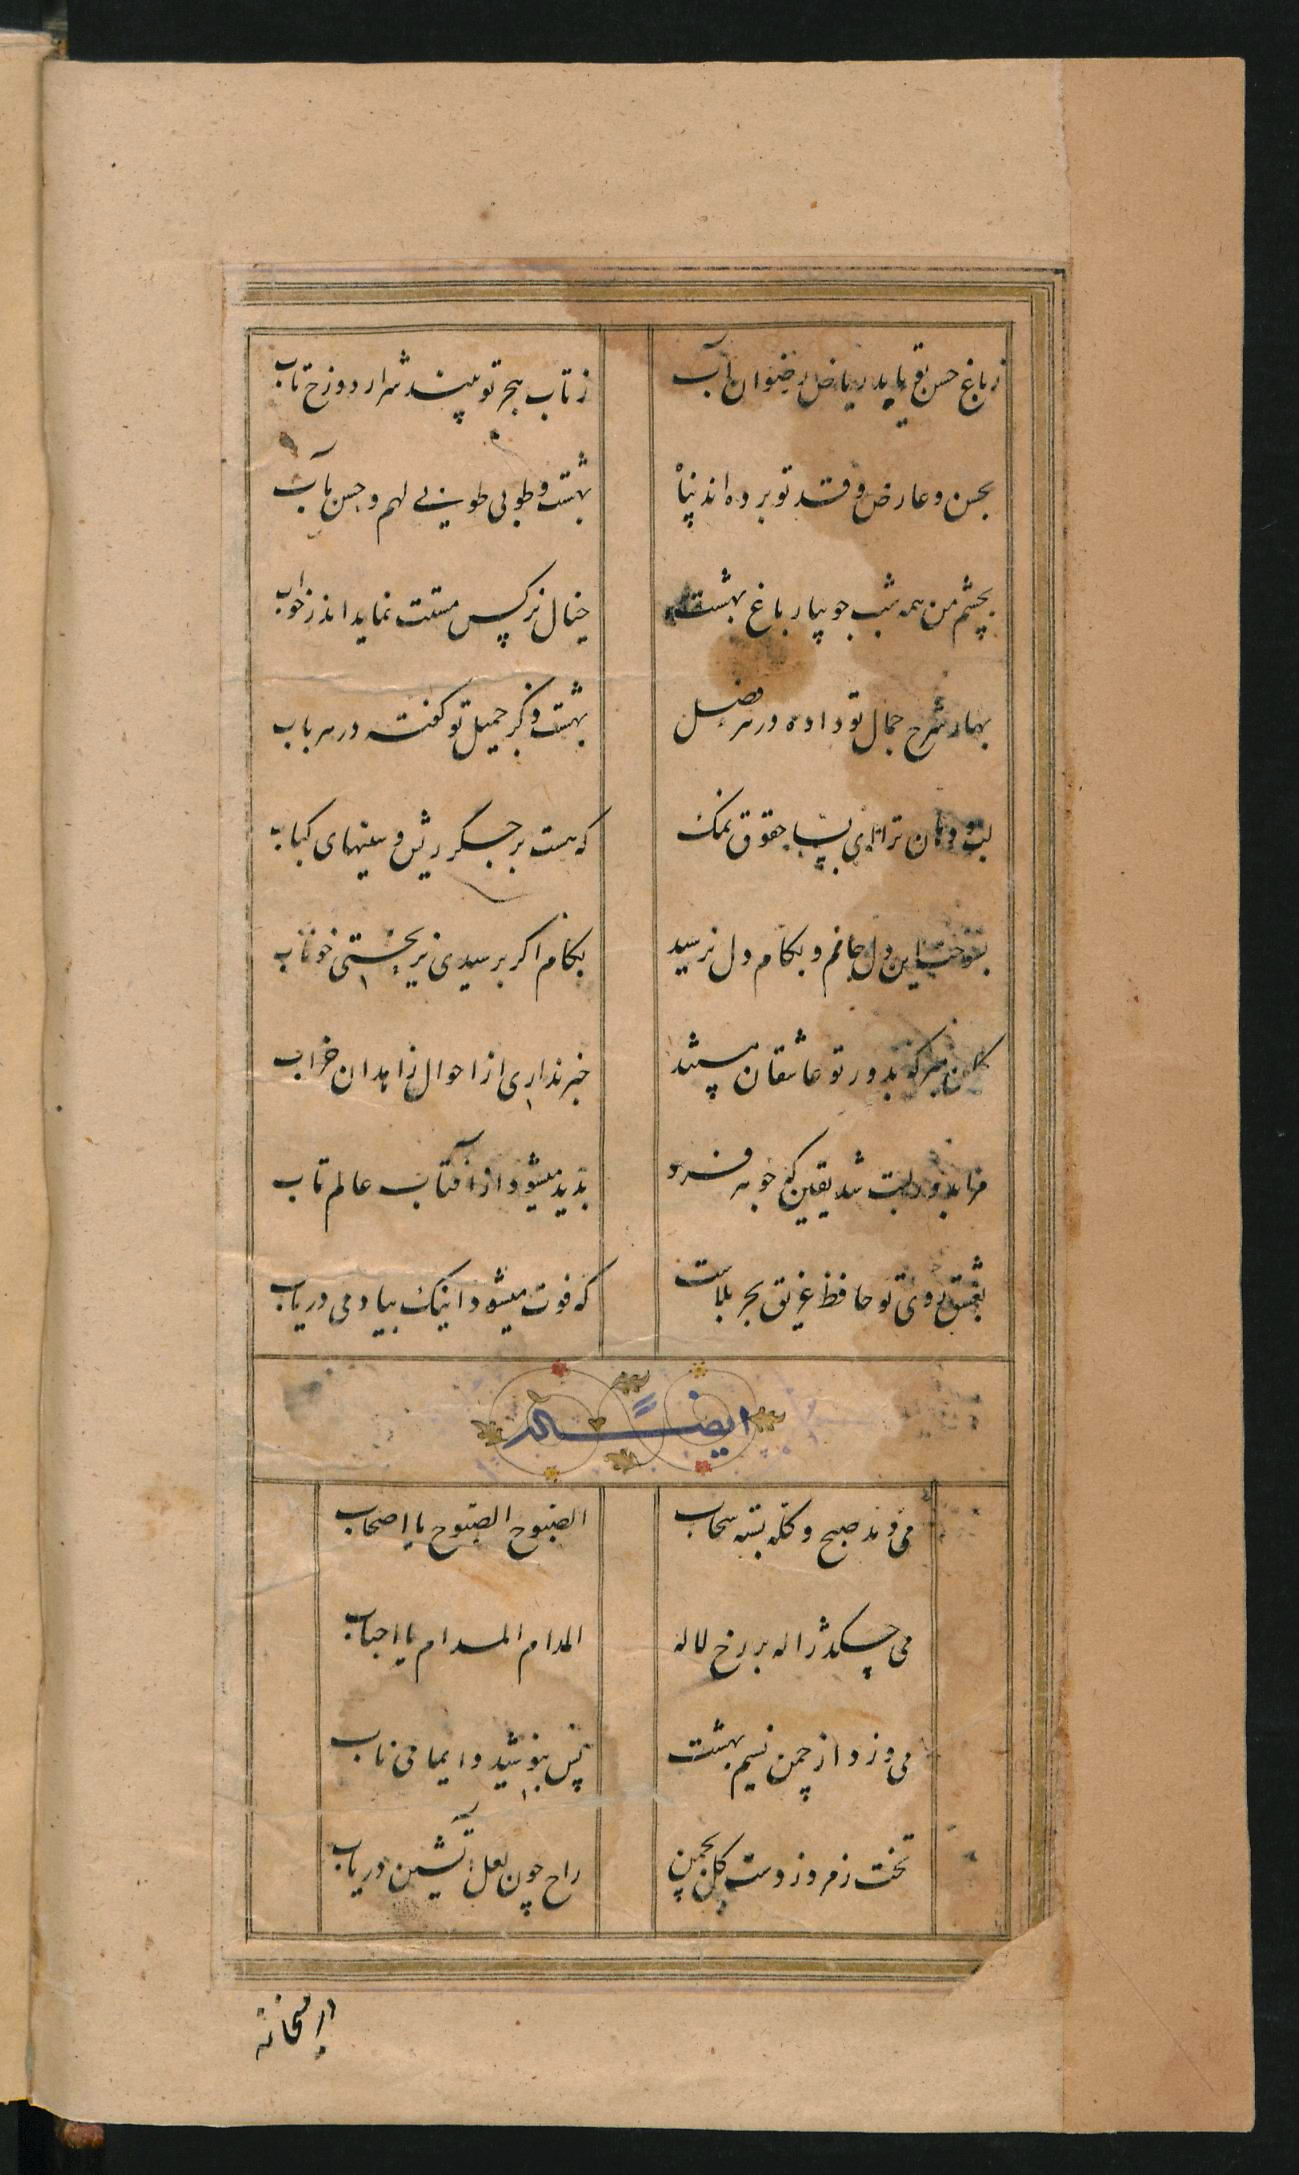 ز باغ حسن تو یابد ریاض رضوان آب ز تاب هجر تو بیند شرار دوزخ تاب
بحسن و عارض و قد تو برده اند پناه بهشت و طوبی طوبی لهم و حسن مآب
بچشم من همه شب جویبار باغ بهشت خیال نرکس مستت نماید اندر خواب
بهار شرح جمال تو داده در هر فصل بهشت ذکر جمیل تو کفته در هر باب
لب و دهان ترا ای بسا حقوق نمک که هست بر جگر ریش و سینهای کباب
بسوخت این دل جانم و بکام دل نرسید بکام اکر برسیدی نریختی خوناب
کمان مبر که بدور تو عاشقان مستند خبر نداری از احوال زاهدان خراب
مرا بدور لبت شد یقین که جوهر فرد بدید میشود از آفتاب عالم تاب
بعشق روی تو حافظ غریق بحر بلاست که فوت میشود اینک بیا دمی دریاب
ایضاً له
می دمد صبح و کله بسته سحاب الصبوح الصبوح یا اصحاب
می چکد ژاله بر رخ لاله المدام المدام یا احباب
می وزد از چمن نسیم بهشت پس بنوشید دایما می ناب
تخت زمرد زدست کل بچمن راح چون لعل آتشین دریاب